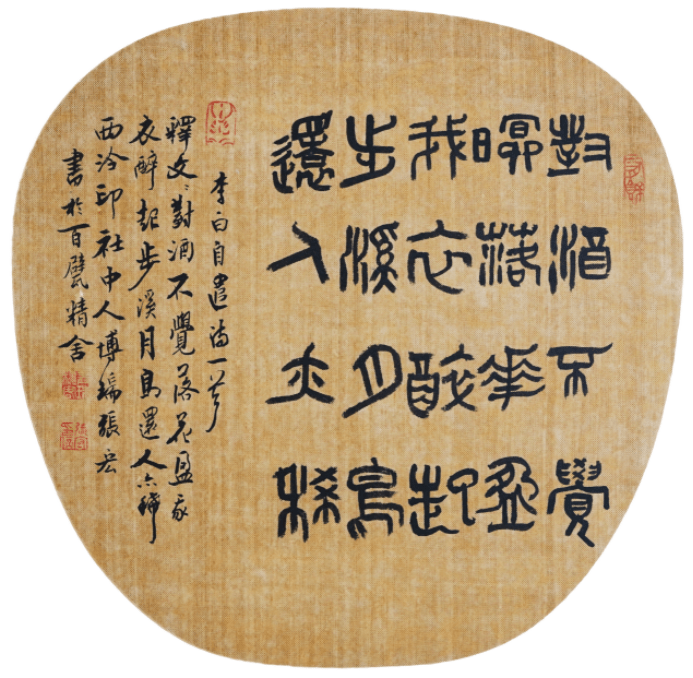 對酒不覺
暝落花盈
我衣醉起
步溪月鳥
還人亦稀
李白自遣詩一首
釋文：對酒不覺落花盈我
衣醉起步溪月鳥還人亦稀
西泠印社中人博瑞張宏
書於百甓精舍